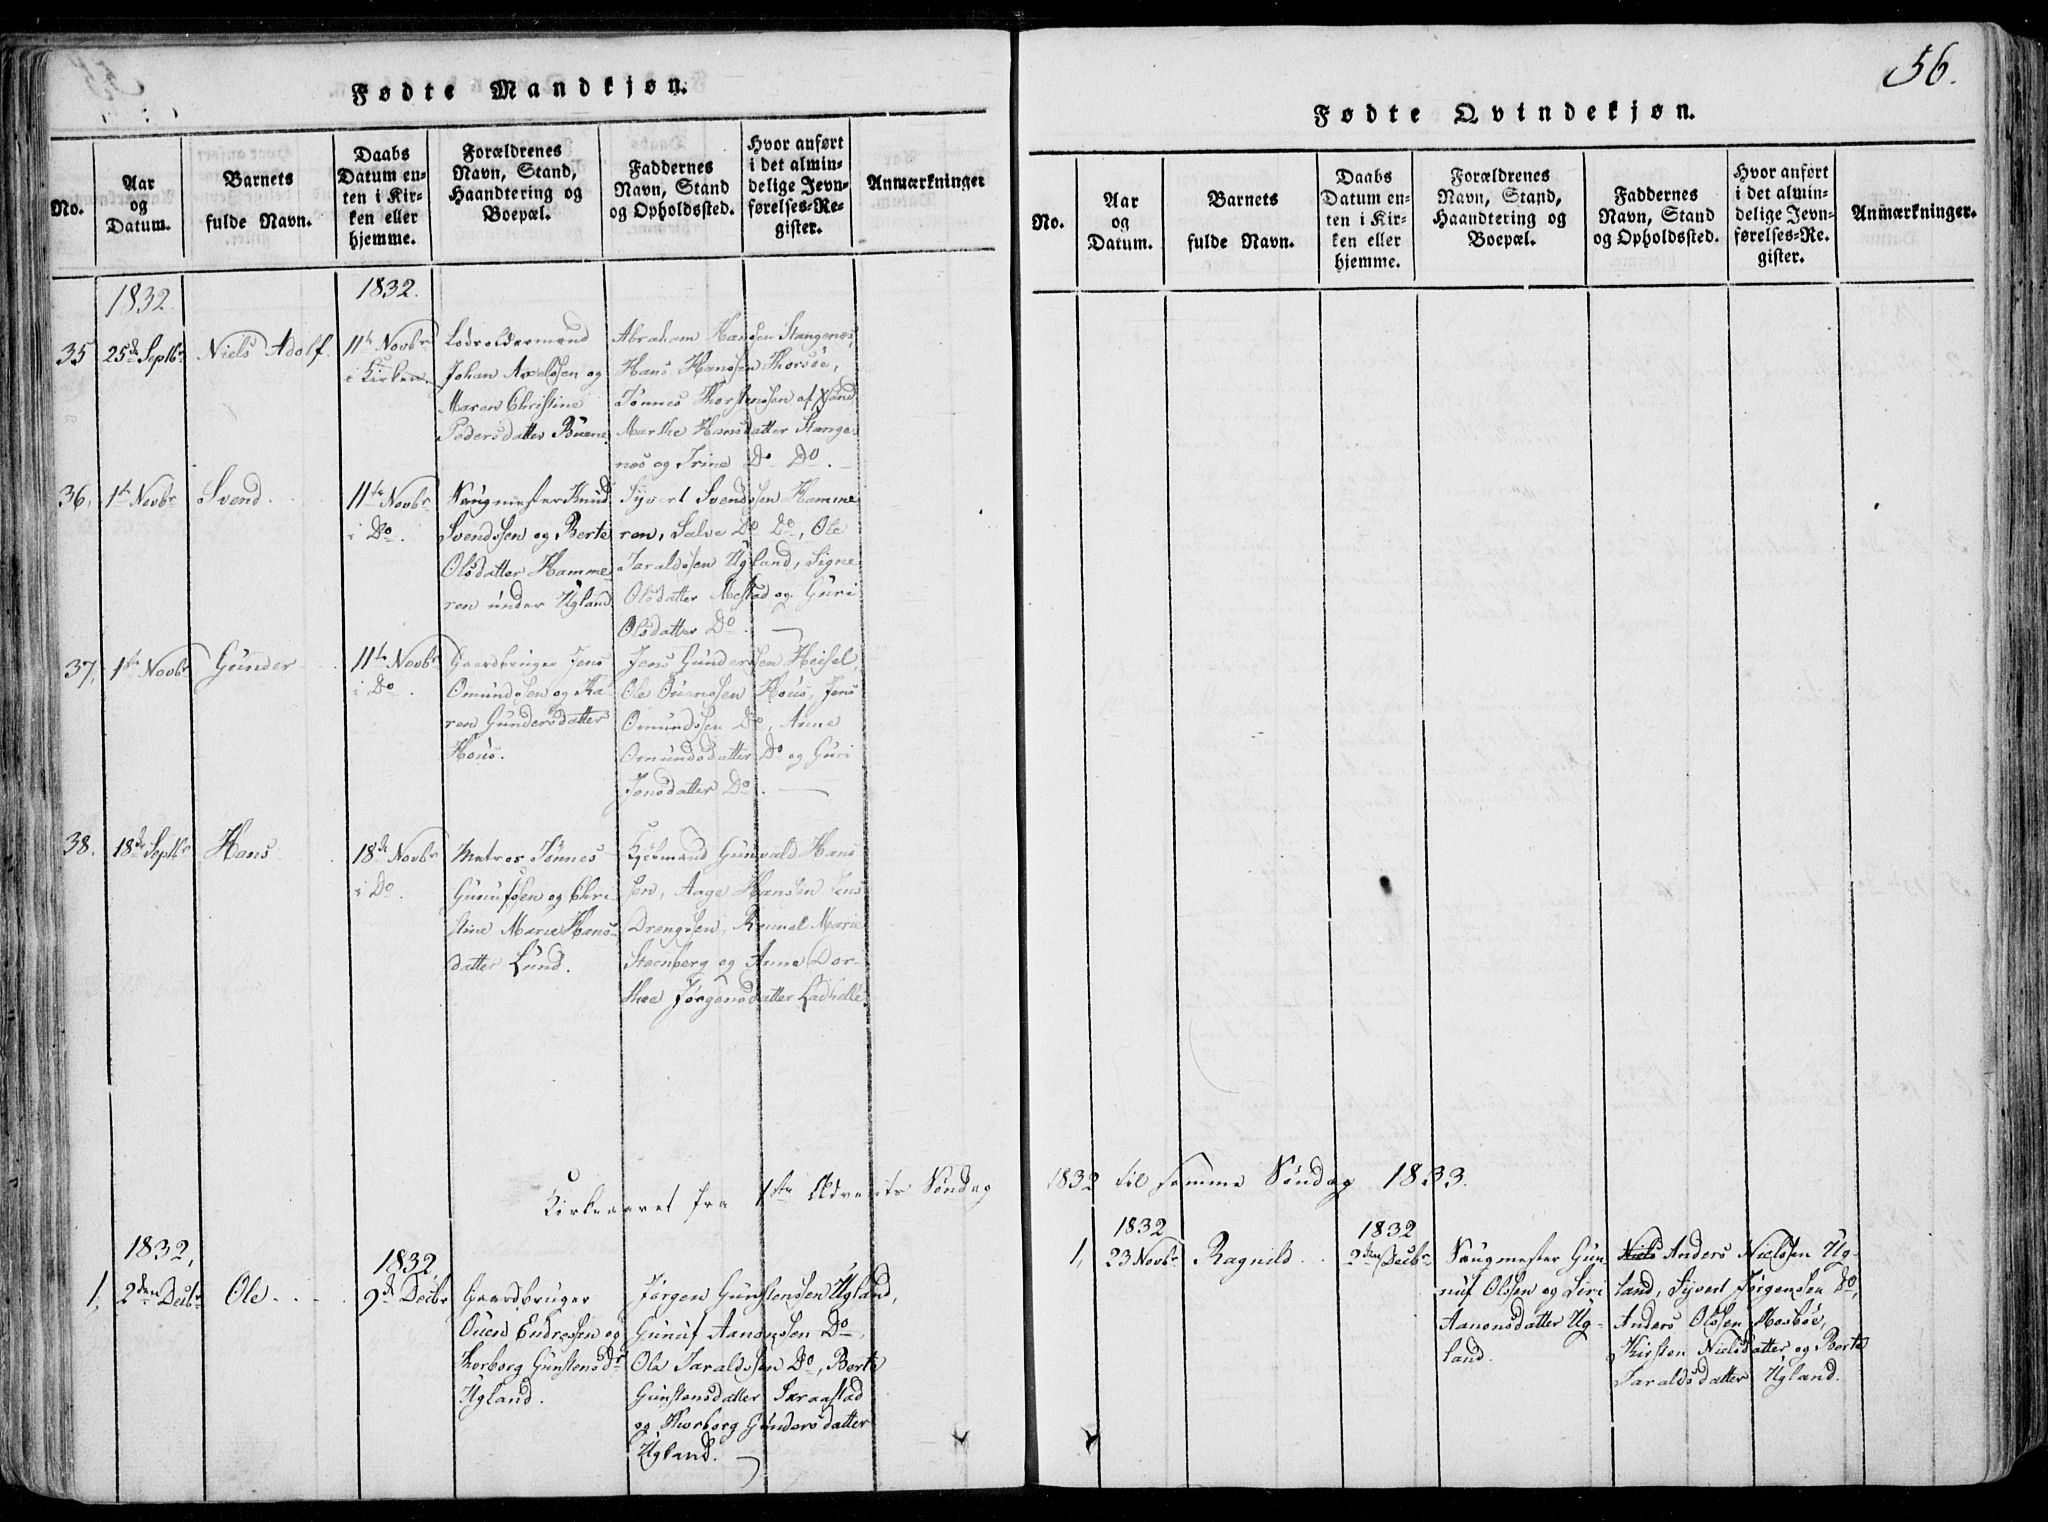 Fødte Mandkjøn.
No.
Aar
og
Datum.
Barnets
fulde Navn.
Daabs
Datum en-
ten i Kir-
ken eller
hjemme.
Forældrenes
Navn, Stand,
Haandtering og
Boepæl.
Faddernes
Navn, Stand
og Opholdssted.
Hvor anført
i det almin-
delige Jevn-
førelses-Re-
gister.
Anmærkninger
1832.
1832.
35
25de Septbr
Niels Adolf.
11te Novbr
i Kirken
Lodsoldermand
Johan Axelssen og
Maren Christine
Pedersdatter Buene
Abraham Hanssen Stangenes,
Hans Hanssen Thorsøe,
Tønnes Thorstenssen af Xsand
Marthe Hansdatter Stange-
nes og Trine Do Do.
36,
1te Novbr
Svend.
11te Novbr
i Do.
Saugmester Knud
Svendssen og Berte
Olsdatter Hamme-
ren under Ugland
Syvert Svendssen Hamme
ren, Salve Do Do, Ole
Taraldssen Ugland, Signe
Olsdatter Mestad og Guri
Olsdatter Do.
37,
1te Novbr
Gunder
11te Novbr
i Do.
Gaardbruger Jens
Omundssen og Ka-
ren Gundersdatter
Hous.
Jens Gunderssen Heisel,
Ole Ouenssen Hous, Jens
Omundssen Do, Anne
Omundsdatter Do og Guri
Jensdatter Do.
38.
18de Septbr
Hans
18de Novbr
i Do.
Matros Tønnes
Gunufsen og Chri-
stine Marie Hans-
datter Lund.
Kjøbmand Gunvald Hans
sen, Aage Hansen Jens
Drengsen, Marie
Steenberg og Anne Dor-
thee Jørgensdatter Ladhelle.
Kirkeaaret fra 1ste Advents Søndag
1832,
1,
2den Decbr
Ole
1832
9de Decbr
Gaardbruger
Ouen Endressen og
Thorborg Gunstensdr
Ugland.
Jørgen Gunstensen Ugland,
Gunuf Aanonssen Do,
Ole Taraldssen Do, Berte
Gunstensdatter Taraastad
og Thorborg Gundersdatter
Ugland.
56.
Fødte Qvindekjøn.
No.
Aar
og
Datum.
Barnets
fulde Navn.
Daabs
Datum en-
ten i Kir-
ken eller
hjemme.
Forældrenes
Navn, Stand,
Haandtering og
Boepæl.
Faddernes
Navn, Stand
og Opholdssted.
Hvor anført
i det almin-
delige Jevn-
førelses-Re-
gister.
Anmærkninger.
1832 til samme Søndag 1833.
1832
1,
23 Novbr
Ragnild
1832
2den Decbr
Saugmester Gun-
nuf Olssen og Siri
Aanonsdatter Ug-
land.
Niels Anders Nielssen Ug-
land, Syvert Jørgensen Do,
Anders Olssen Mosbøe,
Kirsten Nielsdatter og Berte
Taraldsdatter Ugland.